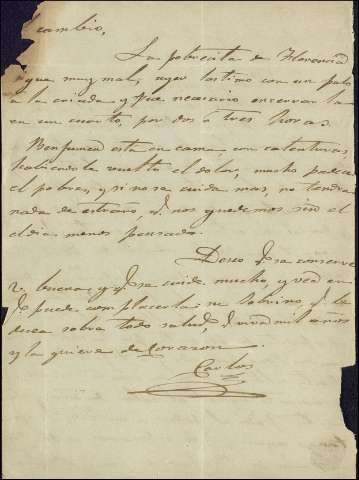 cambio,
La pobrecita de Florencia
sigue muy mal, ayer lastimó con un palo
a la criada y fué necesario encerrarla
en un cuarto, por dos ó tres horas.
Bonfunca está en cama, con calenturas,
habiendole vuelto el dolor, mucho padece
el pobre, y si no se cuida mas, no tendrá
nada de estraño, q. nos quedemos sin él
el dia menos pensado.
Deseo q. se conserve
V. buena, y q. se cuide mucho, y vea en
q. puede complacerla su sobrino, q. le
desea sobre todo salud, q. viva mil años
y la quiere de corazon.
Carlos